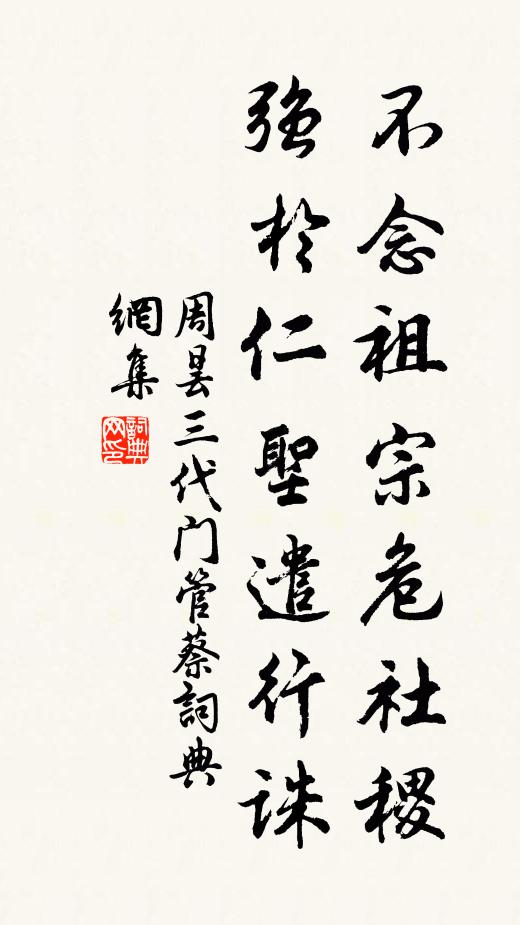 不念祖宗危社稷
强於仁聖遣行誅
周昙三代门管蔡詞典
網集
詞典
网印